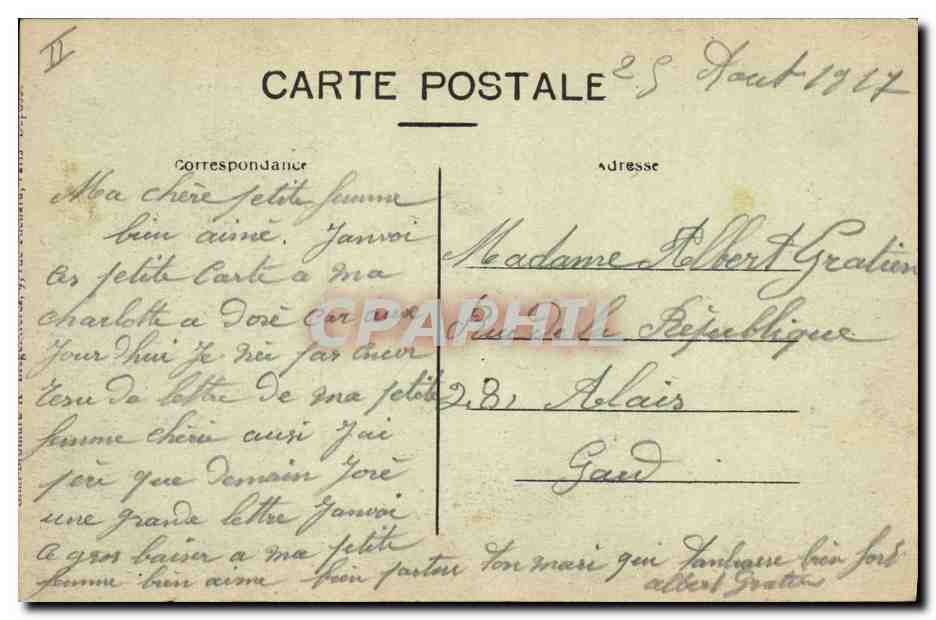 II
CARTE POSTALE
25 Aout 1917
Correspondance
Adresse
Ma chère petite femme
bien aimé. Janvoi
as petite Carte a ma
charlotte a doré Car aux
Jour dhui Je néi pas encor
resu de lettre de ma petite
femme chérie ausi J'ai
père que demain Joré
une grande lettre Janvoi
a gros baiser a ma petite
femme bien aimé bien partou ton mari qui tanbrasse bien fort
albert Gratien
Madame Albert Gratien
Rue de la République
28, Alais
Gard
CPARHIL